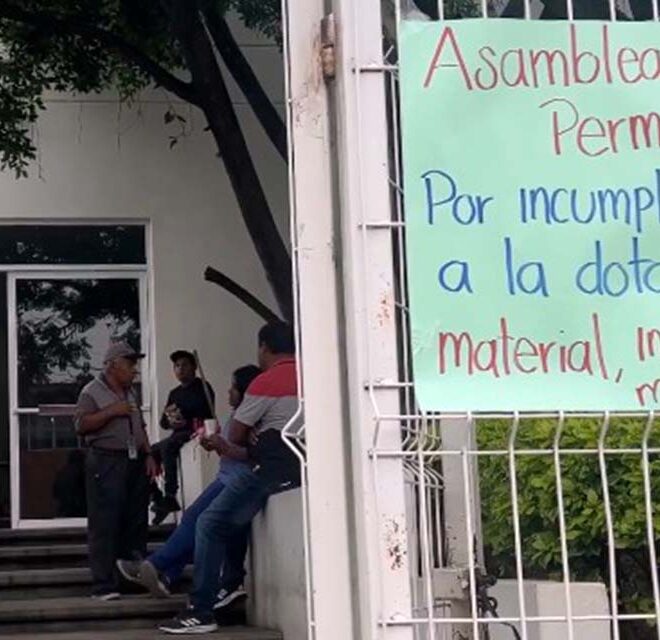 Asamblea
Perm
Por incumpl
a la dota
material, in
m